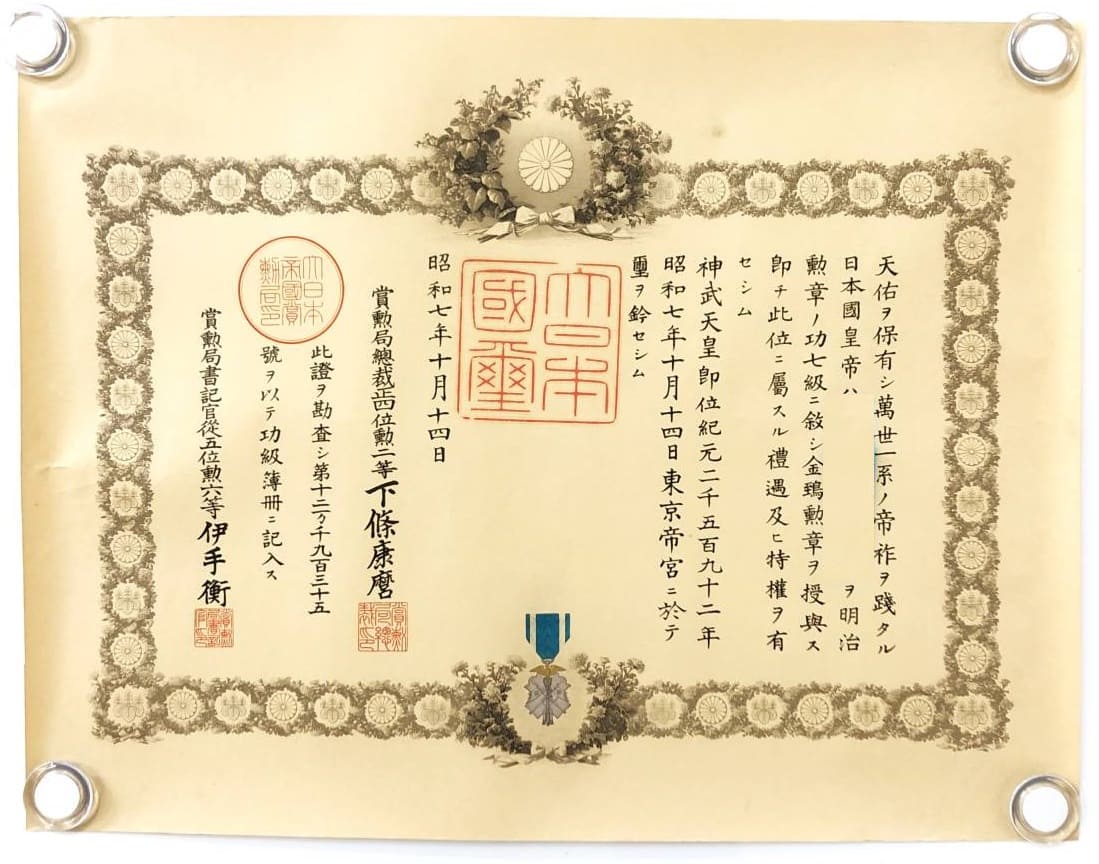 天佑ヲ保有シ萬世一系ノ帝祚ヲ踐タル
日本國皇帝ハ　ヲ明治
勲章ノ功七級ニ敘シ金鵄勲章ヲ授與ス
卽チ此位ニ屬スル禮遇及ヒ特權ヲ有
セシム
神武天皇卽位紀元二千五百九十二年
昭和七年十月十四日東京帝宮ニ於テ
璽ヲ鈐セシム
大日本
國璽
昭和七年十月十四日
賞勲局總裁正四位勲二等下條康麿
賞勲局總裁印
大日本
帝國賞
勲局印
此證ヲ勘査シ第十二万千九百三十五
號ヲ以テ功級簿册ニ記入ス
賞勲局書記官從五位勲六等伊手衡